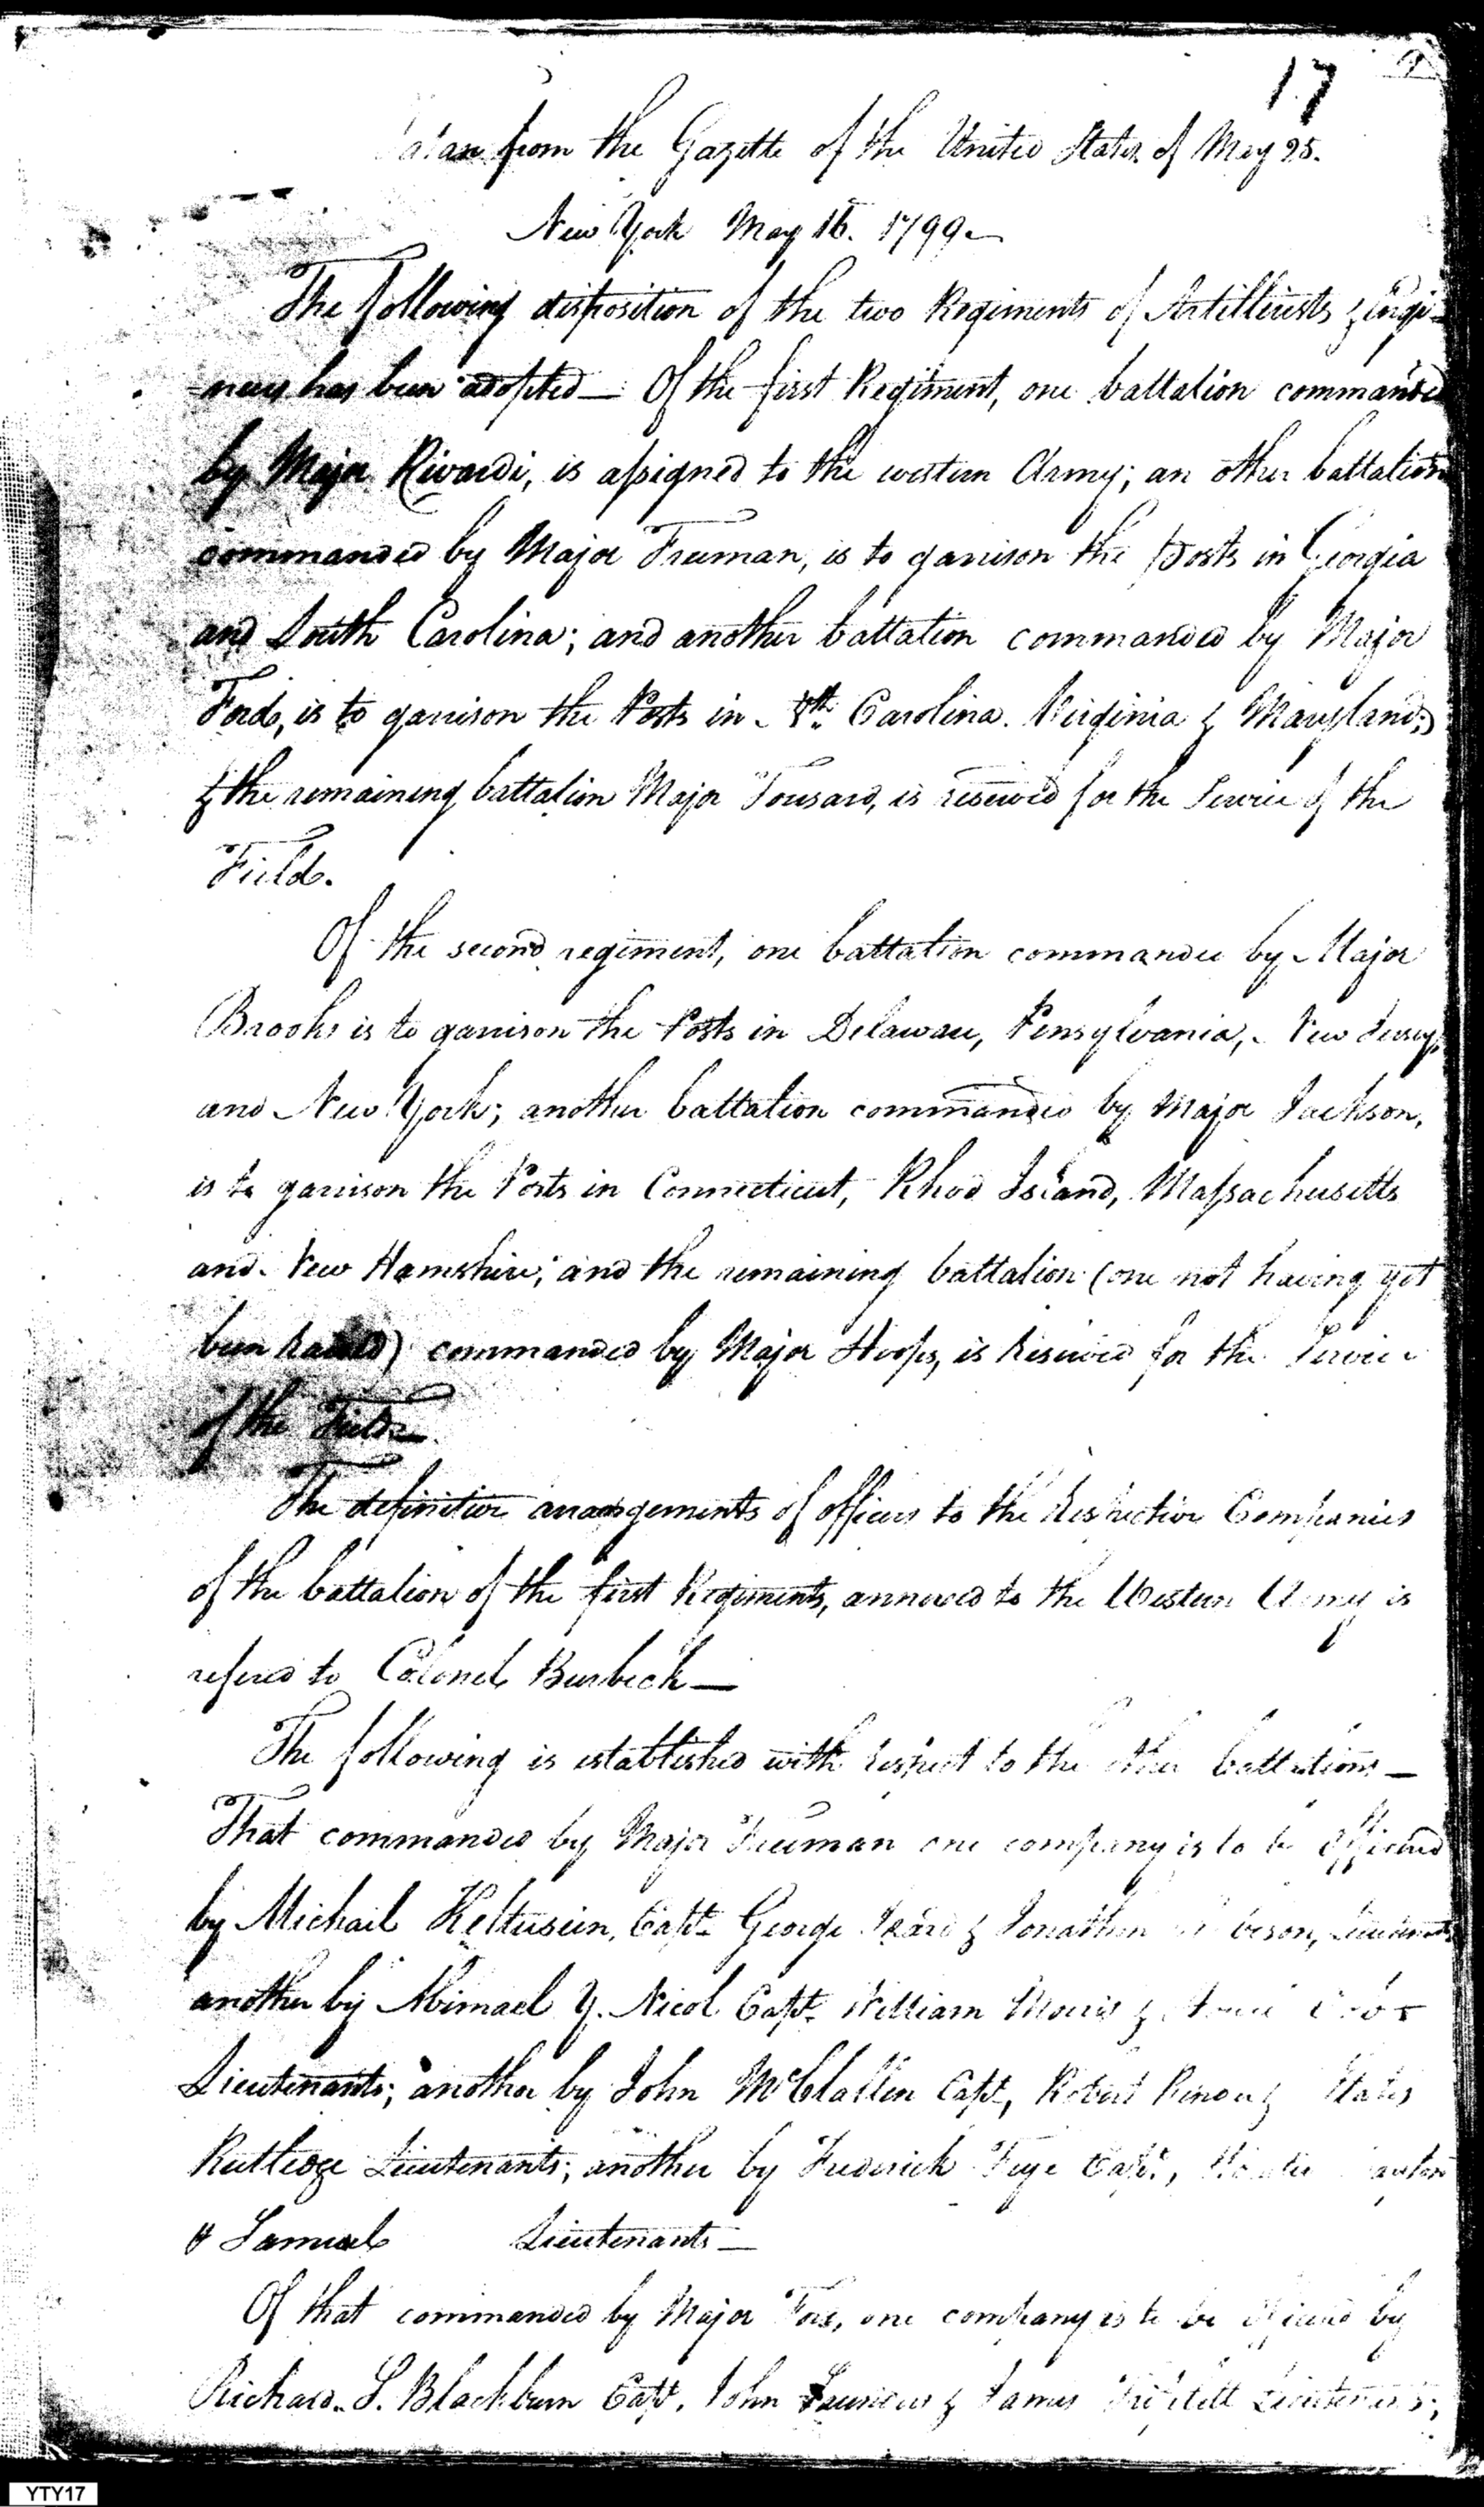 17
from the Gazette of the United States of May 25.
New York May 16. 1799
The following disposition of the two Regiments of Artillerists & Engi-
neers has been adopted — Of the first Regiment, one battalion commanded
by Major Rivardi, is assigned to the western Army; an other battalion
commanded by Major Freeman, is to garrison the posts in Georgia
and South Carolina; and another battalion commanded by Major
Ford, is to garrison the Posts in Nth. Carolina. Virginia & Maryland;
& the remaining battalion Major Tousard, is reserved for the Service of the
Field.
Of the second regiment, one battalion commanded by Major
Brooks is to garrison the Posts in Delaware, Pensylvania, New Jersey,
and New York; another battalion commanded by Major Jackson,
is to garrison the Posts in Connecticut, Rhod Island, Massachusetts
and New Hamshire; and the remaining battalion (one not having yet
been raised) commanded by Major Hoops, is Reserved for the Service
of the Field —
The definitive arrangements of officers to the Respective Companies
of the battalion of the first Regiments, annexed to the Western Army is
refered to Colonel Burbeck —
The following is established with respect to the other battalions —
That commanded by Major Freeman one company is to be officered
by Michail Kelteusein, Capt. George Izard & Jonathan Lieutenants
another by Abimael Y. Nicol Capt. William Morris &
Lieutenants; another by John McClallin Capt, Robert & States
Rutledge Lieutenants; another by Frederick Frye Capt.,
& Samuel Lieutenants —
Of that commanded by Major Ford, one company is to be officered by
Richard S. Blackburn Capt. John Saunders & James Triplett Lieutenants;
YTY17